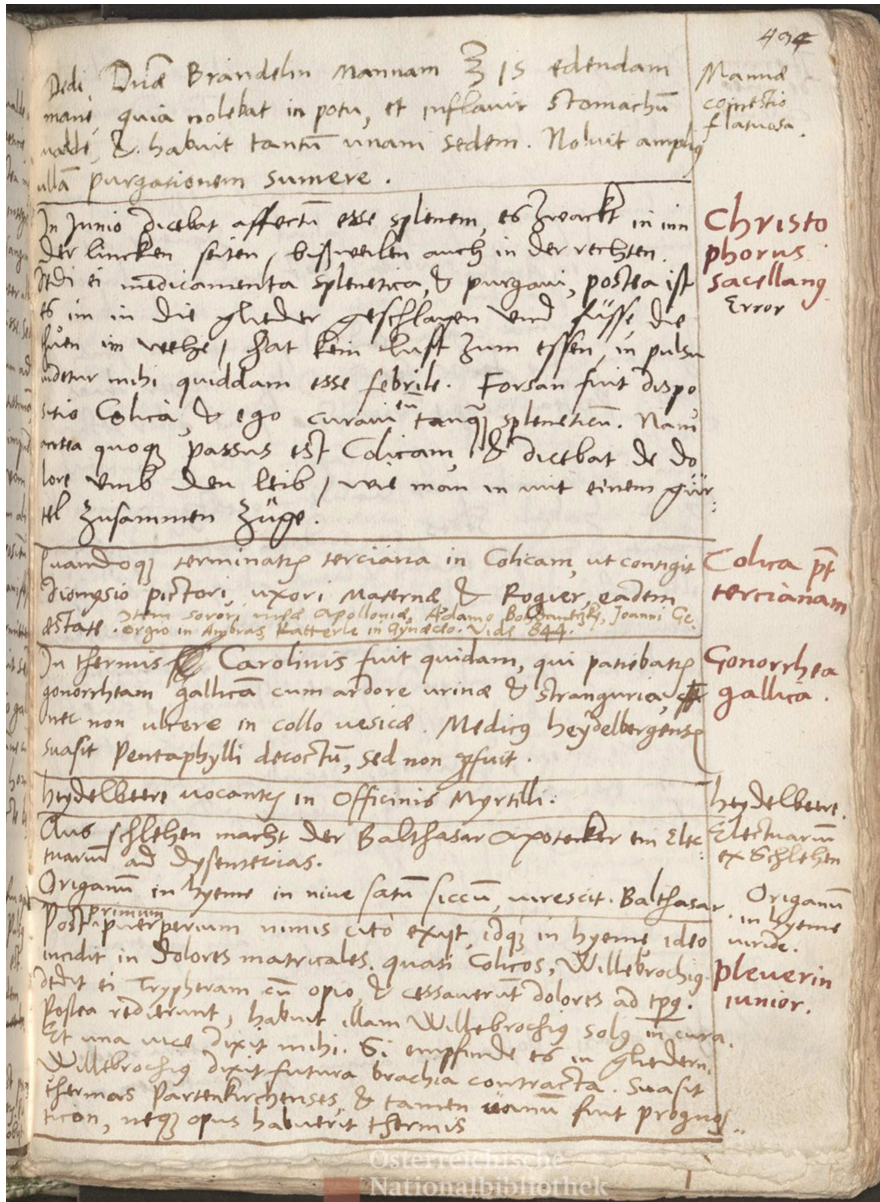 494
Dedi Duae Brandelin Mannam ℥ 15 edendam
mane, quia nolebat in potu, et inflavit stomachū
valde, &. habuit tantū unam sedem. Noluit ampliꝰ
ullā purgationem sumere.
Mannæ
comestio
flatuosa.
In Junio dicebat affectū esse splenem, es zwackt in inn
der lincken seiten, bißweilen auch in der rechten.
Dedi ei medicamenta splenetica, & purgavi, postea ist
es im in die glieder geschlagen und füsse, die
thuen im wehe, hat kein lust zum essen, in pulsu
videtur mihi quiddam esse febrile. Forsan fuit dispo
sitio Colica, & ego curavi eū tanq̃ spleneticū. Nam
antea quoqꝫ passus est Colicam, & dicebat de do
lore umb den leib, wie man in mit einem gür
tel zusammen züge.
Christo
phorus
sacellanꝰ
Error
Quandoqꝫ terminatꝛ terciana in Colicam, ut contigit
Dionysio pictori, uxori Maternæ & Rogier, eadem
æstate. Item sorori meæ Apolloniæ, Adamo, Joanni Ge
orgio in Ambras, Katterle in Gynæceo. Vide 844.
Colica pꝰt
tercianam
In thermis Carolinis fuit quidam, qui patiebatꝛ
gonorrheam gallicā cum ardore urinæ & stranguria,
nec non ulcere in collo vesicæ. Medicꝰ heydelbergensis
suasit Pentaphylli decoctū, sed non ꝓfuit.
Gonorrhea
gallica.
heydelbeere vocantꝛ in Officinis Myrtilli.
heydelbeere.
Aus schlehen macht der Balthasar Apotecker ein Elec
tuariū ad dysenterias.
Electuariū
ex Schlehen
Origanū in hyeme in nive satū siccū, virescit. Balthasar.
Origanū
in hyeme
viride.
Post primum puerperium nimis cito exijt, idqꝫ in hyeme, ideo
incidit in dolores matricales, quasi Colicos, Willebrochiꝰ
dedit ei Trypheram cū opio, & cessaverūt dolores ad tpꝰ.
Postea redierunt, habuit illam Willebrochiꝰ solꝰ in cura.
Et una vice dixit mihi. Si empfinde es in gliedern.
Willebrochiꝰ dixit futura brachia contracta. Suasit
thermas Partenkirchenses, & tamen vanū fuit prognos
ticon, neqꝫ opus habuerit thermis
pleverin
iunior.
Österreichische
Nationalbibliothek